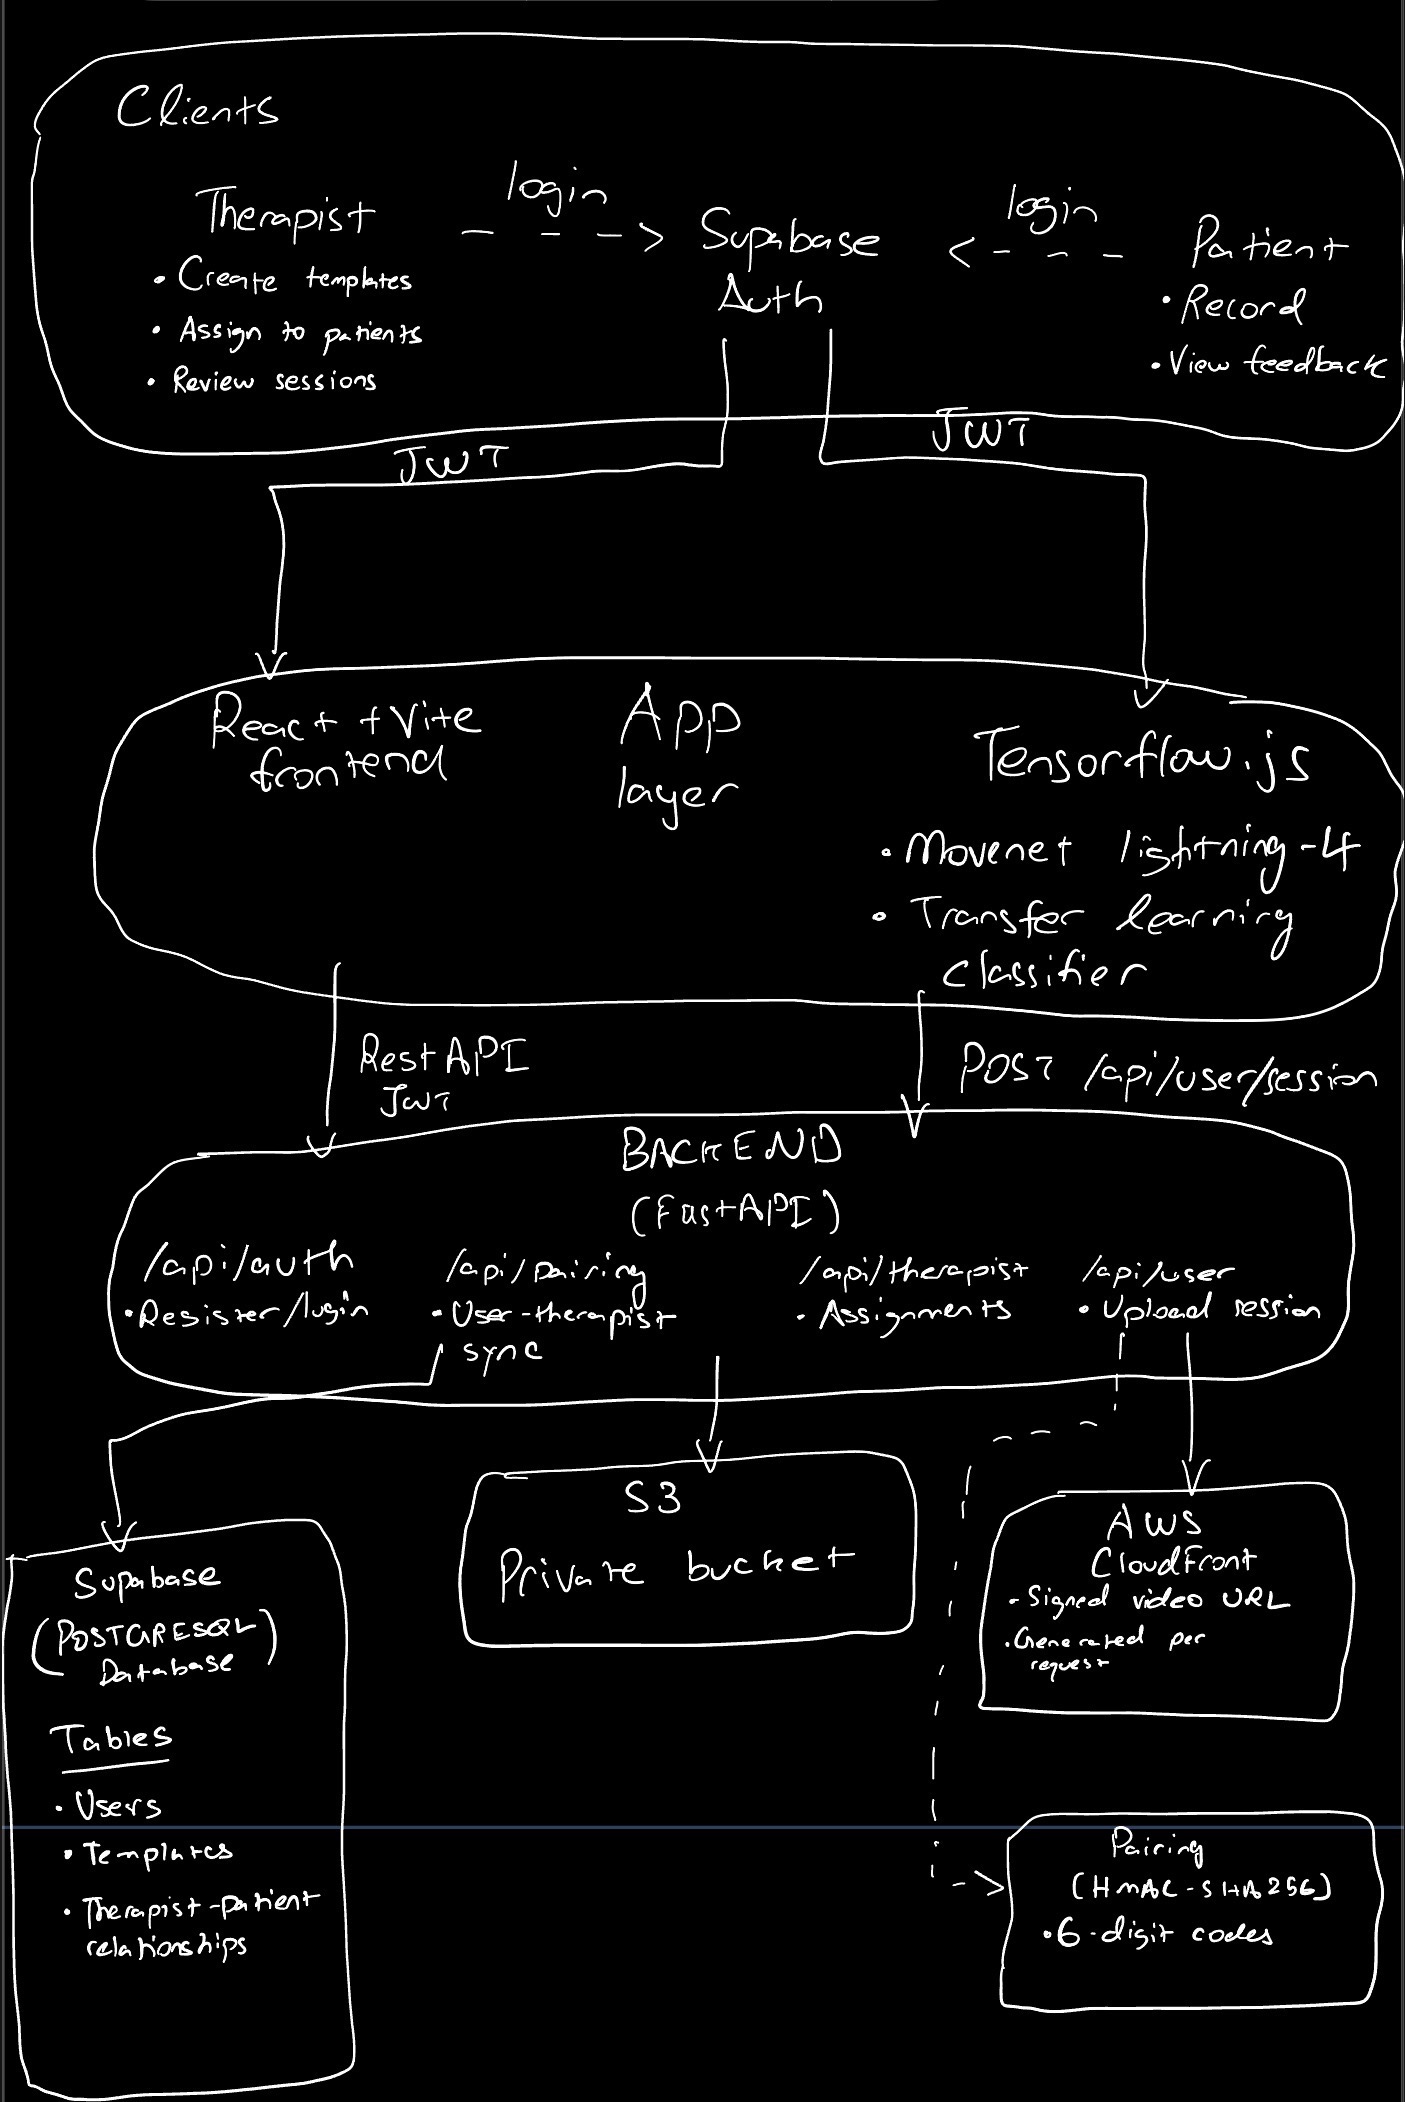 Clients
Therapist
• Create templates
• Assign to patients
• Review sessions
login
Supabase
Auth
login
Patient
• Record
• View feedback
JWT
JWT
React + Vite
frontend
App
layer
Tensorflow.js
• Movenet lightning-4
• Transfer learning
classifier
Rest API
JWT
POST /api/user/session
BACKEND
(FastAPI)
/api/auth
• Resister/login
/api/pairing
• User-therapist
sync
/api/therapist
• Assignments
/api/user
• Upload session
Supabase
(POSTGRESQL)
Database
Tables
• Users
• Templates
• Therapist-patient
relationships
S3
Private bucket
AWS
CloudFront
- Signed video URL
• Generated per
request
Pairing
(HMAC-SHA256)
• 6-digit codes